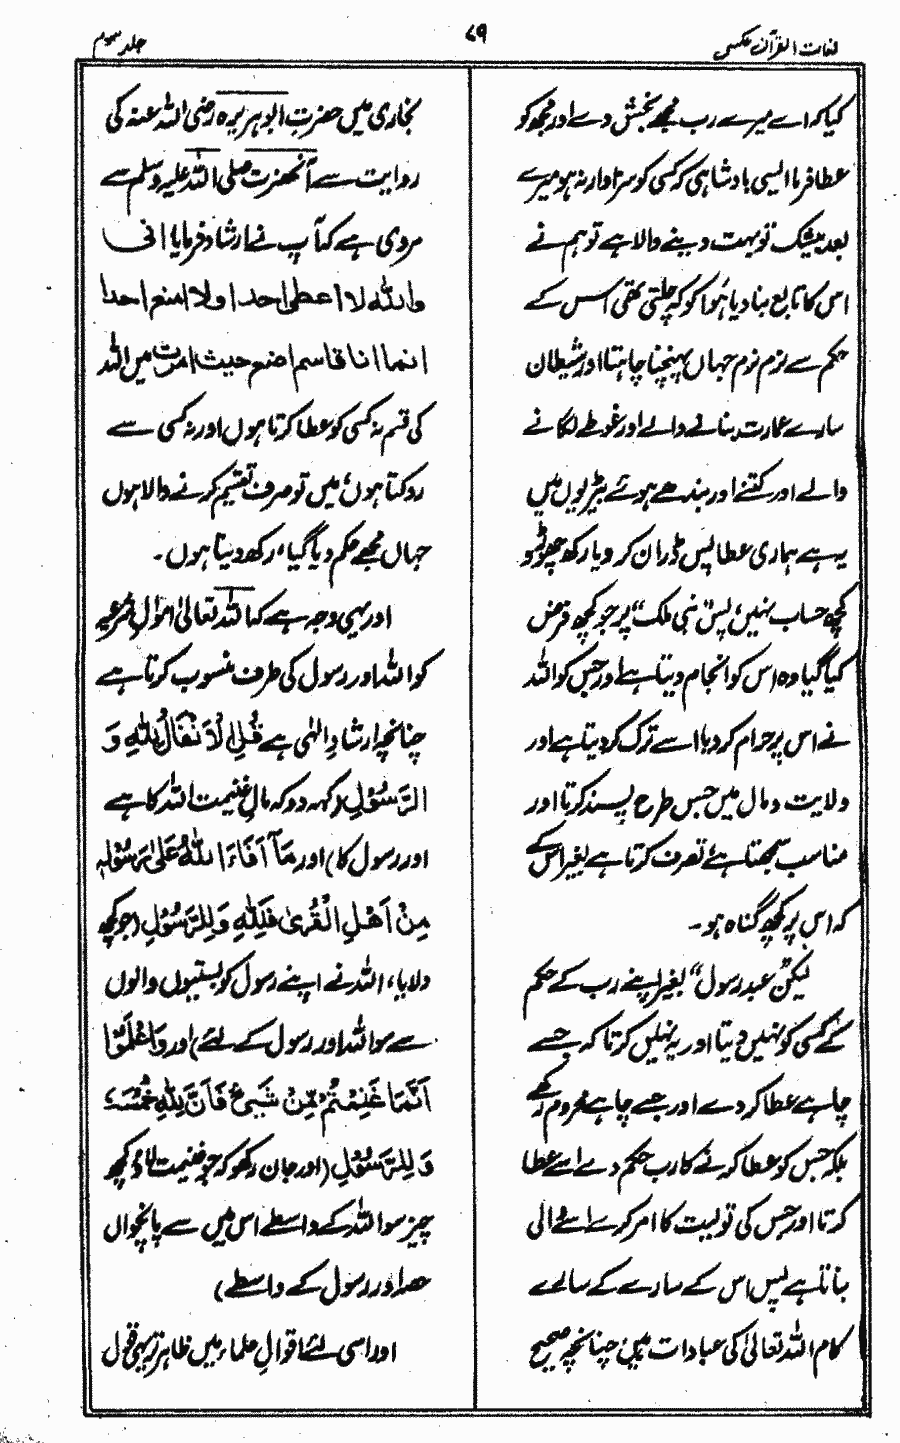 لغات القرآن عکسی
۷۹
جلد سوم
کیا کہ اے میرے رب مجھے بخش دے اور مجھ کو
عطا فرما ایسی بادشاہی کہ کسی کو سزاوار نہ ہو میرے
بعد بیشک تو بہت دینے والا ہے تو ہم نے
اس کا تابع بنا دیا ہَوا کو کہ چلتی تھی اس کے
حکم سے نرم نرم جہاں پہنچنا چاہتا اور شیطان
سارے عمارت بنانے والے اور غوطے لگانے
والے اور کتنے اور بندھے ہوئے بیڑیوں میں
یہ ہے ہماری عطا پس گذران کر و یا رکھ چھوڑو
کچھ حساب نہیں، پس "نبی ملک" پر جو کچھ فرض
کیا گیا وہ اس کو انجام دیتا ہے اور جس کو اللہ
نے اس پر حرام کر دیا اسے ترک کر دیتا ہے اور
ولایت و مال میں جس طرح پسند کرتا اور
مناسب سمجھتا ہے تصرف کرتا ہے بغیر اس کے
کہ اس پر کچھ گناہ ہو۔
لیکن "عبد رسول" بغیر اپنے رب کے حکم
کے کسی کو نہیں دیتا اور یہ نہیں کرتا کہ جسے
چاہے عطا کر دے اور جسے چاہے محروم رکھے
بلکہ جس کو عطا کرنے کا رب حکم دے اسے عطا
کرتا اور جس کی تولیت کا امر کرے اسے والی
بناتا ہے پس اس کے سارے کے سارے
کام اللہ تعالیٰ کی عبادات ہیں، چنانچہ صحیح
بخاری میں حضرت ابو ہریرہ رضی اللہ عنہ کی
روایت سے آنحضرت صلی اللہ علیہ وسلم سے
مروی ہے کہ آپ نے ارشاد فرمایا انی
واللہ لا اعطی احدا ولا امنع احدا
انما انا قاسم اضع حیث امرت میں اللہ
کی قسم نہ کسی کو عطا کرتا ہوں اور نہ کسی سے
روکتا ہوں، میں تو صرف تقسیم کرنے والا ہوں
جہاں مجھے حکم دیا گیا، رکھ دیتا ہوں۔
اور یہی وجہ ہے کہ اللہ تعالیٰ اموالِ شرعیہ
کو اللہ اور رسول کی طرف منسوب کرتا ہے
چنانچہ ارشادِ الٰہی ہے قُلِ الْاَنْفَالُ لِلّٰهِ وَ
الرَّسُوْلِ (کہہ دو کہ مالِ غنیمت اللہ کا ہے
اور رسول کا) اور مَآ اَفَآءَ اللّٰهُ عَلٰی رَسُوْلِهٖ
مِنْ اَهْلِ الْقُرٰی فَلِلّٰهِ وَلِلرَّسُوْلِ (جو کچھ
دلایا، اللہ نے اپنے رسول کو بستیوں والوں
سے سو اللہ اور رسول کے لئے) اور وَاعْلَمُوْا
اَنَّمَا غَنِمْتُمْ مِّنْ شَیْءٍ فَاَنَّ لِلّٰهِ خُمُسَهٗ
وَلِلرَّسُوْلِ (اور جان رکھو کہ جو غنیمت لاؤ کچھ
چیز سو اللہ کے واسطے اس میں سے پانچواں
حصہ اور رسول کے واسطے)
اور اسی لئے اقوالِ علماء میں ظاہر تر یہی قول